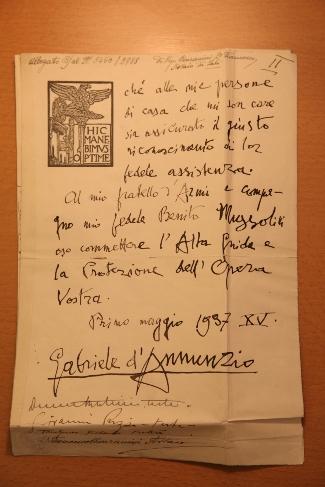 II
HIC
MANE
BIMVS
OPTIME
ché alle mie persone
di casa che mi son care
sia assicurato il giusto
riconoscimento di lor
fedele assistenza.
Al mio fratello d'Armi e compa-
gno mio fedele Benito Mussolini
oso commettere l'Alta Guida e
la Protezione dell'Opera
Vostra.
Primo maggio 1937 XV.
Gabriele d'Annunzio